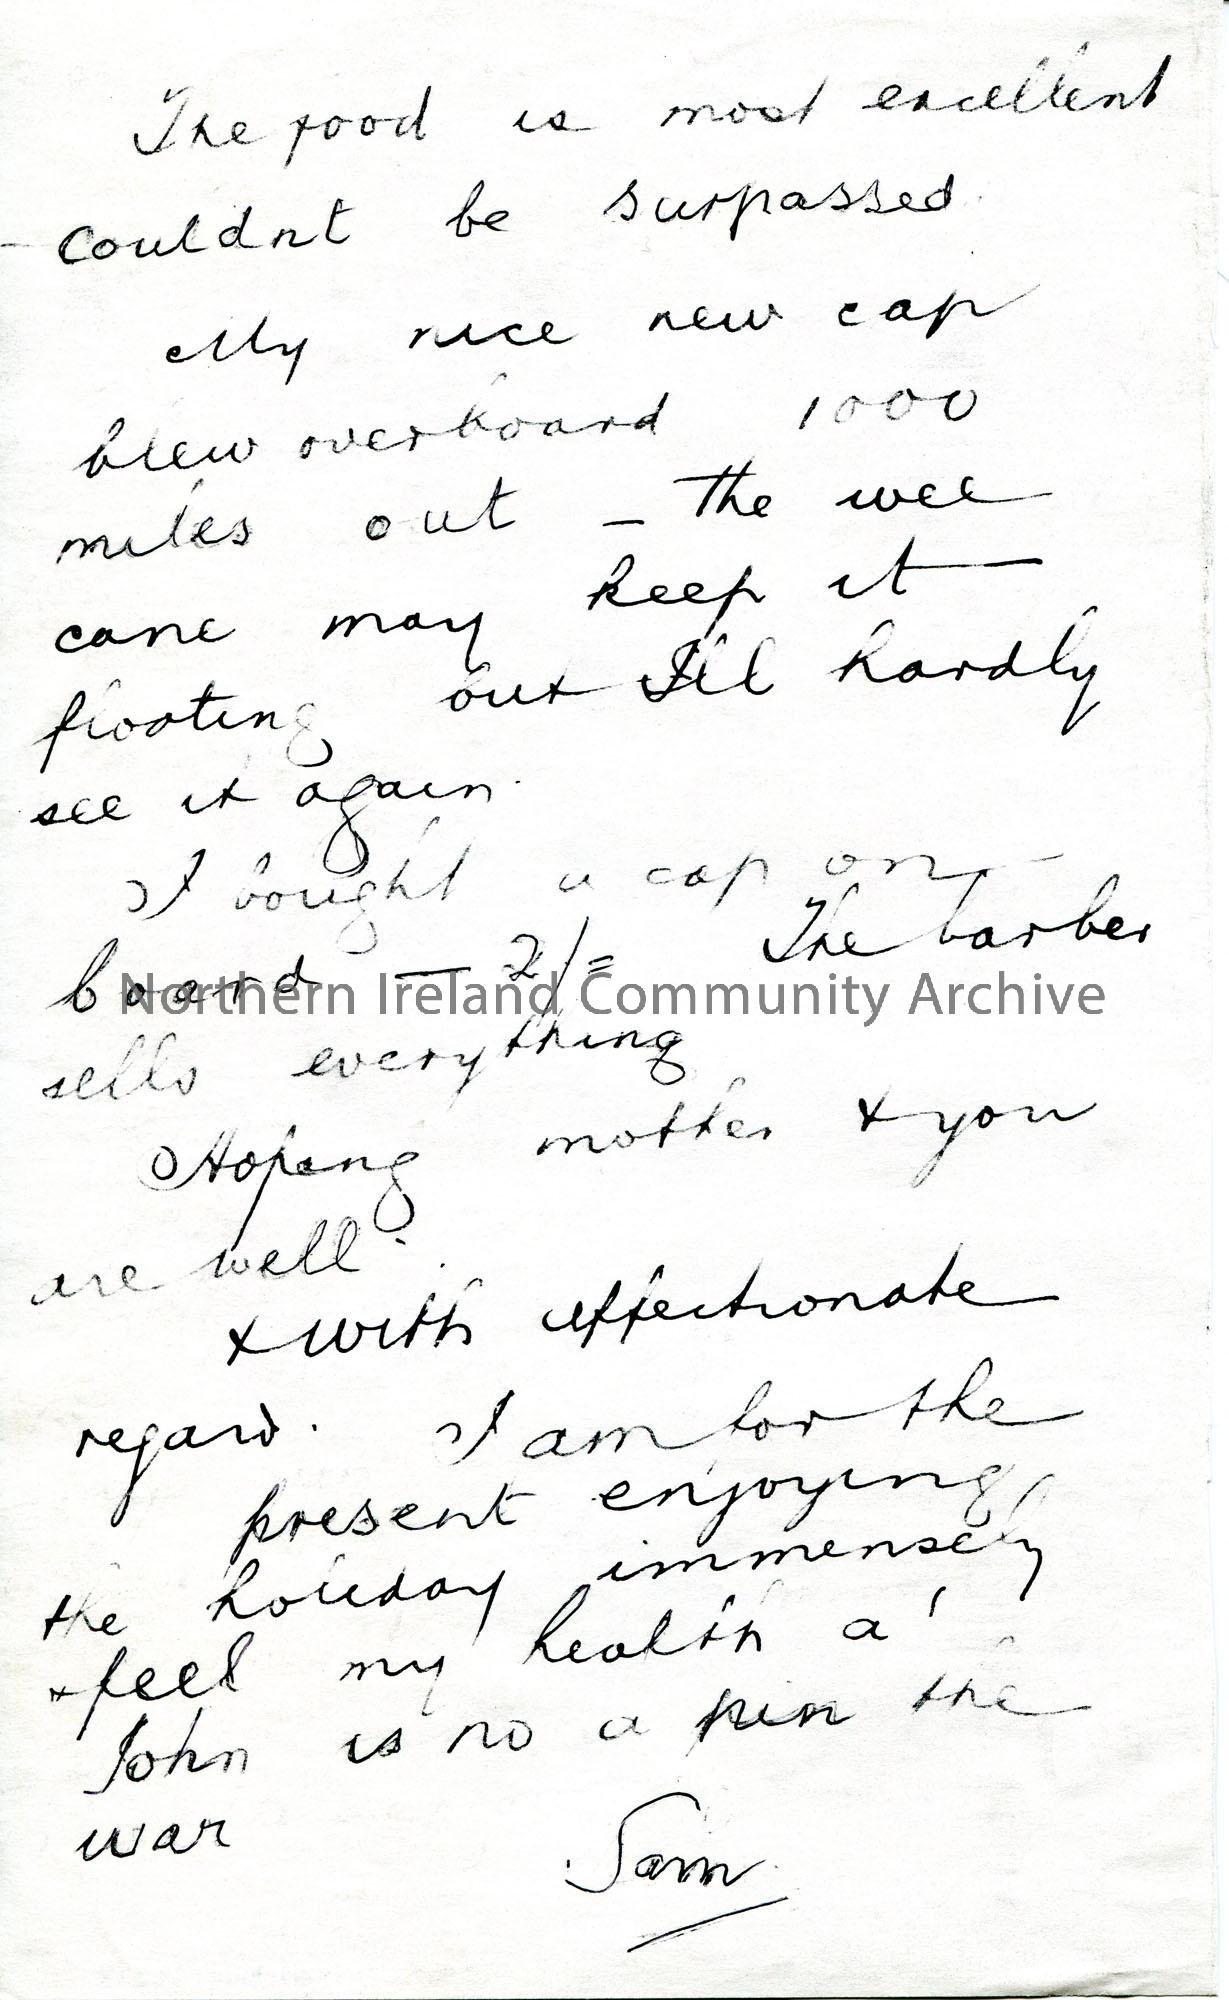 The food is most excellent
couldnt be surpassed.
My nice new cap
blew overboard 1000
miles out – the wee
cane may keep it
floating but I'll hardly
see it again.
I bought a cap on
board — 2/= The barber
Northern Ireland Community Archive
sells everything
Hoping mother & you
are well.
& with affectionate
regard. I am for the
present enjoying
the holiday immensely
& feel my health a'
John is no a pin the
war
Sam